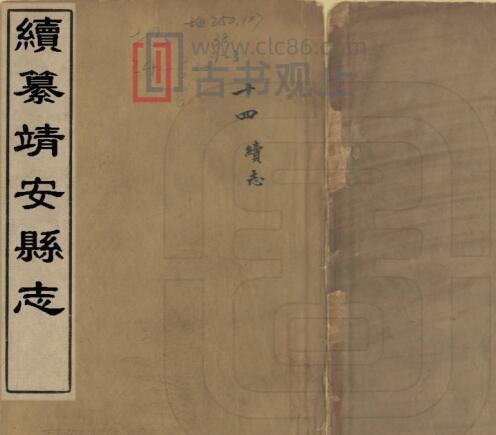 續纂靖安縣志
地250.107
十四
續志
www.clc86.com
古书观止